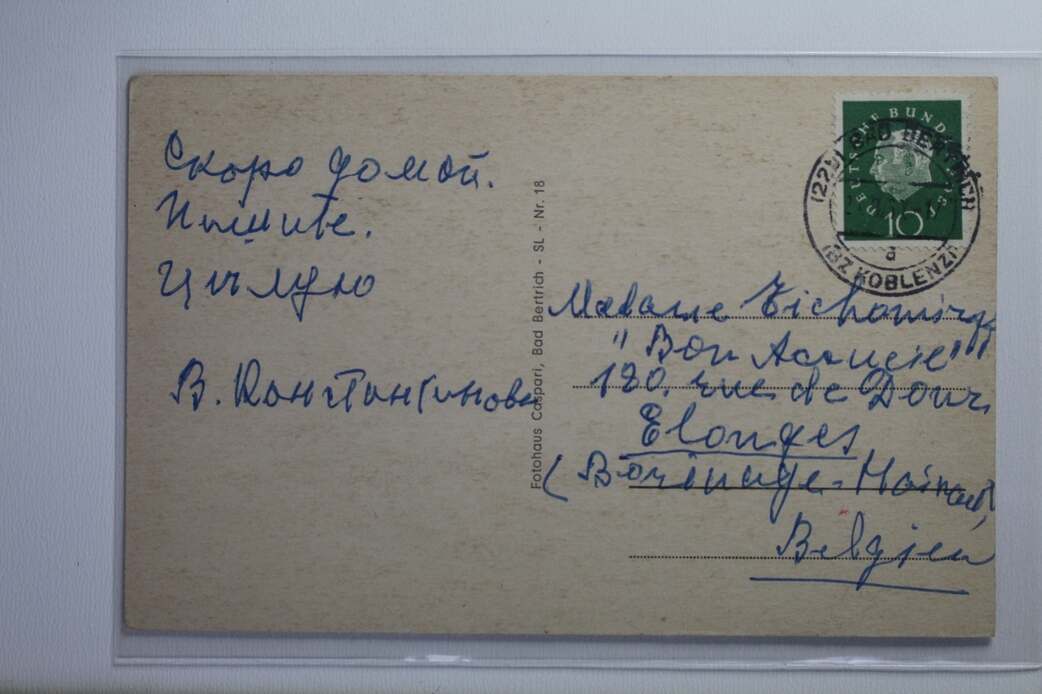 Скоро домой.
Пишите.
Цѣлую
В. Константинова
Fotohaus Caspari, Bad Bertrich - SL - Nr. 18
DEUTSCHE BUNDESPOST
10
(22b) BAD BERTRICH
a
(BZ KOBLENZ)
Madame
"Bon Accueil"
180, rue de Dour
Elouges
(Borinage-Hainaut)
Belgien